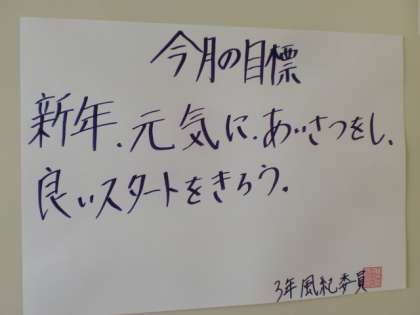 今月の目標
新年、元気に、あいさつをし、
良いスタートをきろう。
3年風紀委員